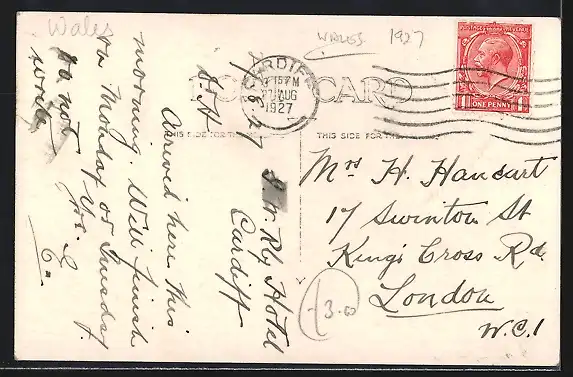 Wales
WALES 1927
POST CARD
THIS SIDE FOR THE
THIS SIDE FOR THE
CARDIFF
7 15 PM
AUG
1927
POSTAGE REVENUE
1 ONE PENNY 1
G. W. Rly Hotel
Cardiff
27/8/27
D. H
Arrived here this
morning. Will finish
on Monday or Tuesday.
Do not
write
Mrs H. Hancart
17 Swinton St
King's Cross Rd.
London
W.C.1
3.00